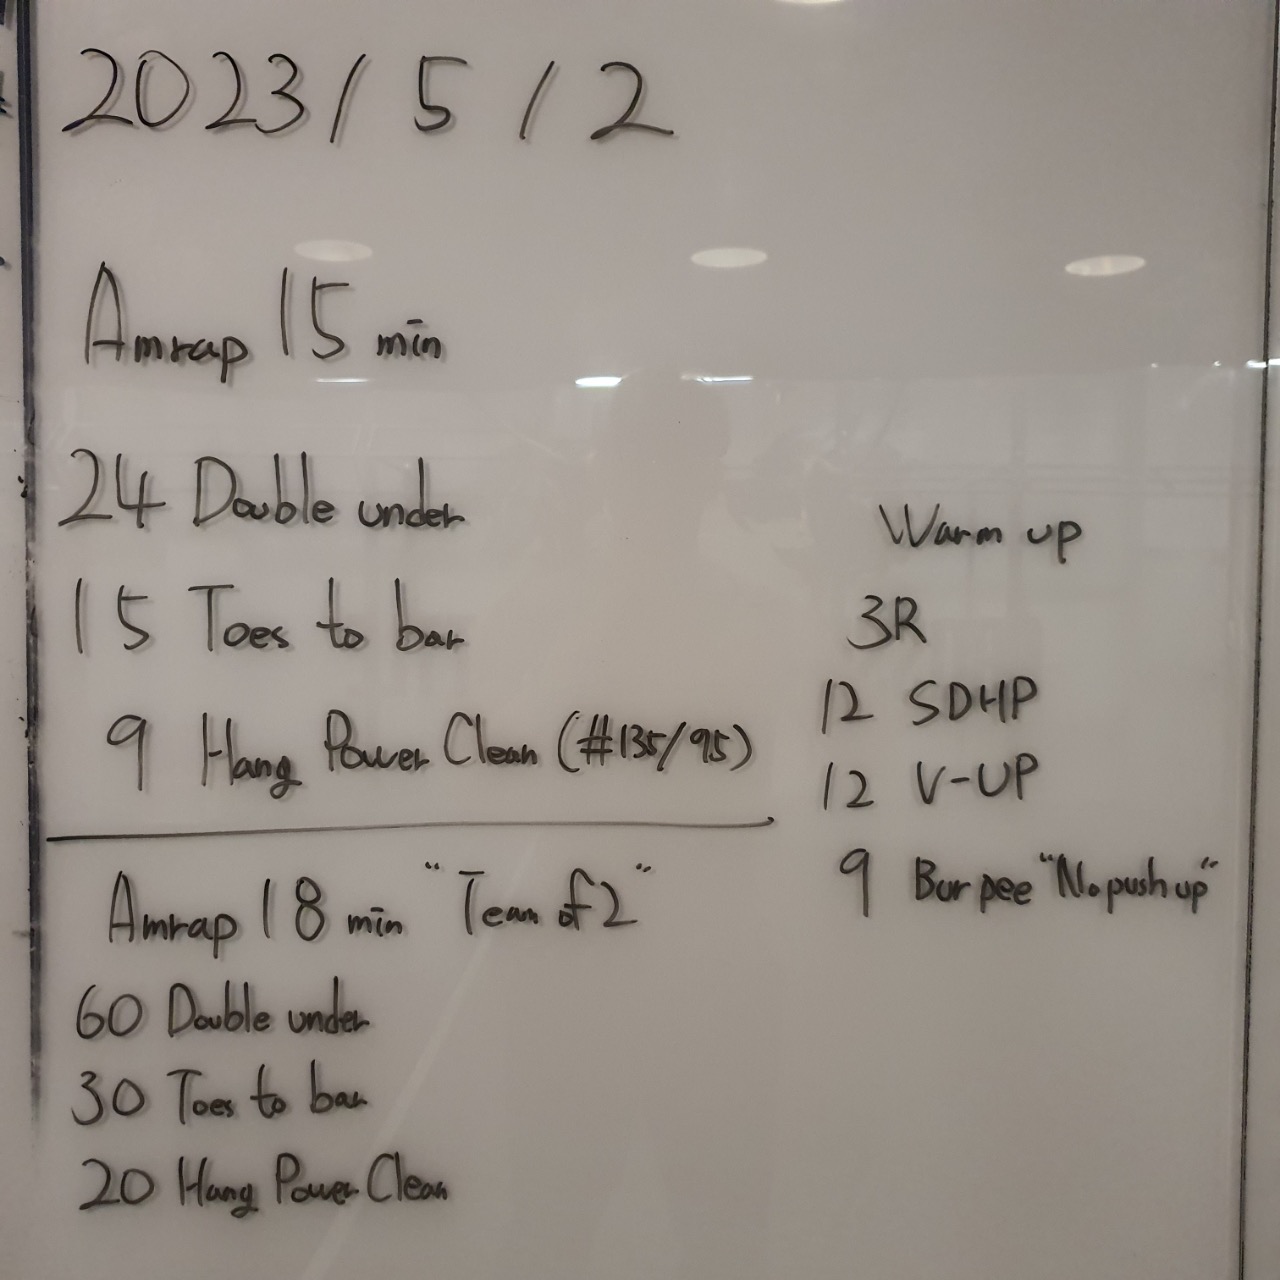 2023/5/2
Amrap 15 min
24 Double under
15 Toes to bar
9 Hang Power Clean (#135/95)
Amrap 18 min "Team of 2"
60 Double under
30 Toes to bar
20 Hang Power Clean
Warm up
3R
12 SDHP
12 V-UP
9 Burpee "No push up"